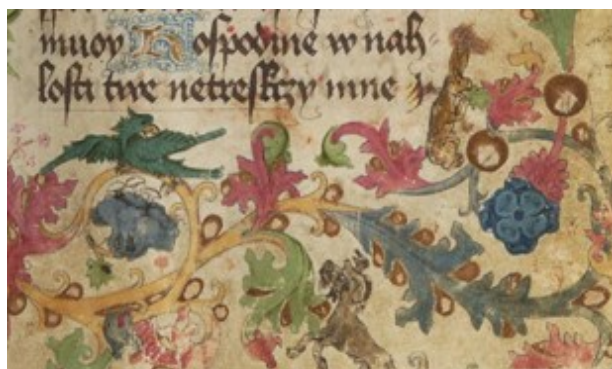 muov Hospodine w nah
losti twe netreskczy mne